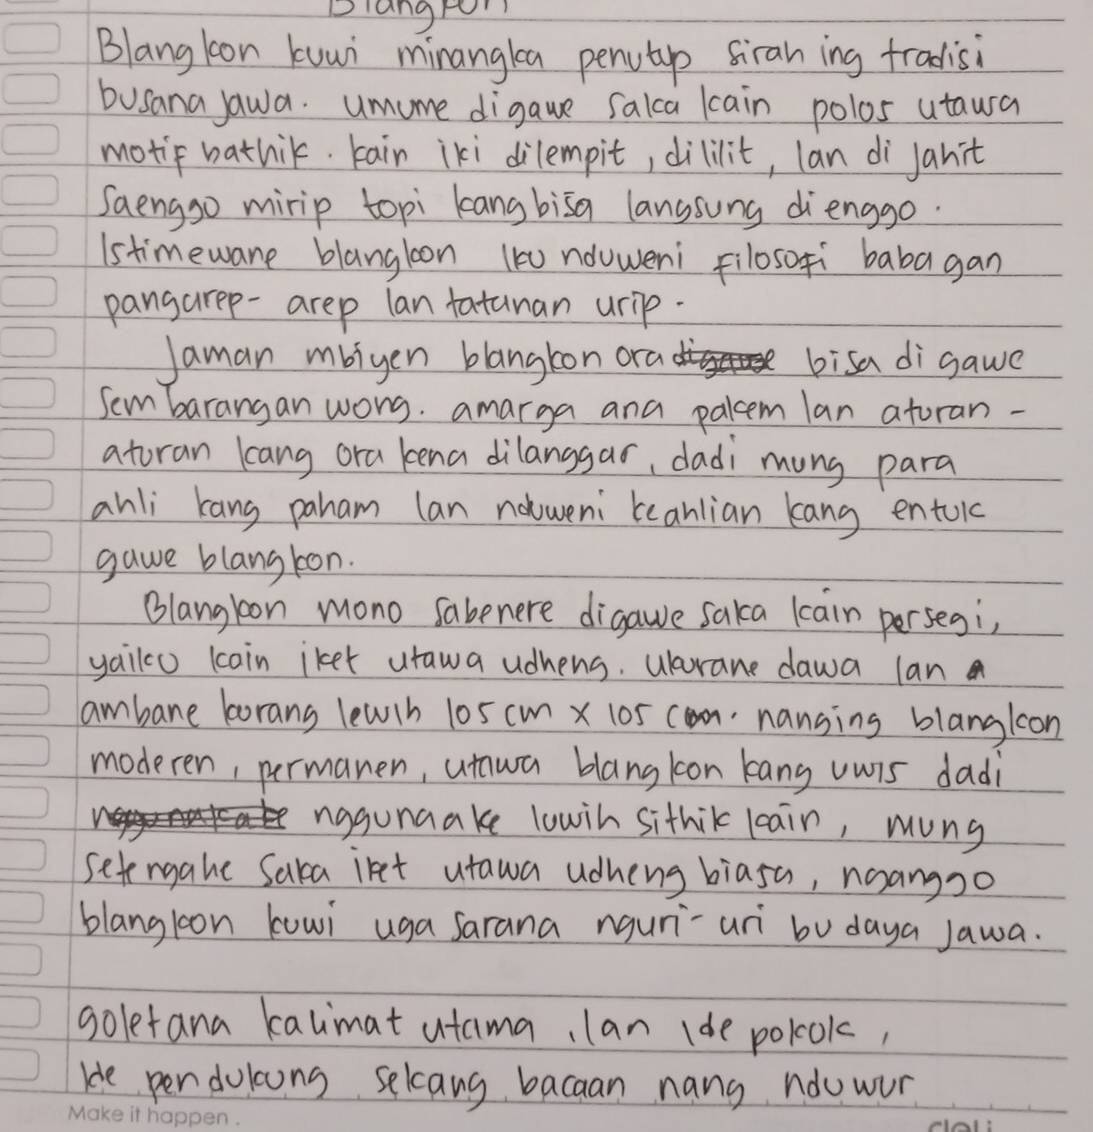 Blangkon
Blangkon kuwi minangka penutup sirah ing tradisi
busana jawa. umume digawe saka kain polos utawa
motif bathik. kain iki dilempit, dililit, lan di jahit
saenggo mirip topi kang bisa langsung di enggo.
Istimewane blangkon iku nduweni filosofi babagan
pangarep-arep lan tatanan urip.
Jaman mbiyen blangkon ora bisa di gawe
sembarangan wong. amarga ana pakem lan aturan-
aturan kang ora kena dilanggar, dadi mung para
ahli kang paham lan nduweni keahlian kang entuk
gawe blangkon.
Blangkon mono sabenere digawe saka kain persegi,
yaiku kain iket utawa udheng. ukurane dawa lan
ambane kurang lewih 105 cm x 105 cm. nanging blangkon
moderen, permanen, utawa blangkon kang uwis dadi
nggunaake luwih sithik kain, mung
setengahe saka iket utawa udheng biasa, nganggo
blangkon kuwi uga sarana nguri-uri budaya jawa.
goletana kalimat utama, lan ide pokok,
ide pendukung sekang bacaan nang nduwur
Make it happen.
deli